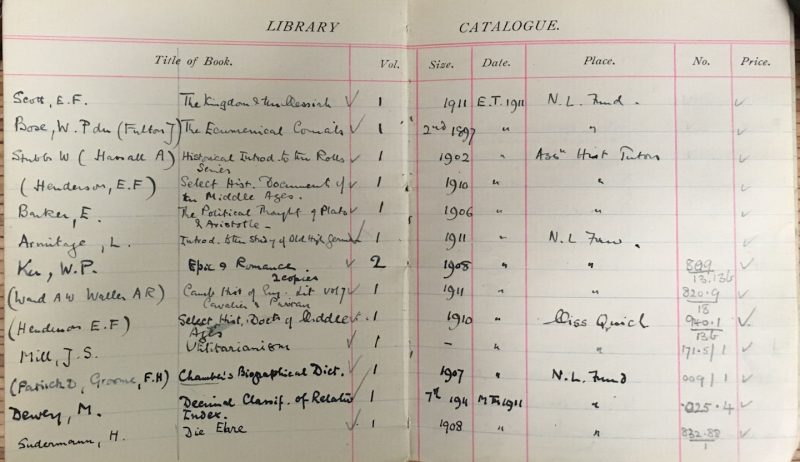 LIBRARY CATALOGUE.
Title of Book. Vol. Size. Date. Place. No. Price.
Scott, E.F. The Kingdom & the Messiah ✓ 1 1911 E.T. 1911 N.L. Fund. ✓
Bose, W. P du (Fulton J) The Ecumenical Councils ✓ 1 2nd 1897 " " ✓
Stubbs W (Hassall A) Historical Introd. to the Rolls ✓ 1 1902 " Assn Hist Tutors ✓
Series
(Henderson, E.F) Select Hist. Documents of ✓ 1 1910 " " ✓
the Middle Ages.
Barker, E. The Political Thought of Plato ✓ 1 1906 " " ✓
& Aristotle -
Armitage, L. Introd. to the Study of Old High German ✓ 1 1911 " N.L. Fund. ✓
Ker, W.P. Epic & Romance. ✓ 2 1908 " " 809 ✓
2 copies 13.136
(Ward A W Waller A R) Camb Hist of Eng. Lit vol 7 ✓ 1 1911 " " 820.9 ✓
Cavalier & Puritan 18
(Henderson E.F) Select Hist. Docts of Middle ✓ 1 1910 " Miss Quick 940.1 ✓
Ages 136
Mill, J.S. Utilitarianism ✓ 1 - " " 171.5/1 ✓
(Patrick D, Groome, F.H) Chambers's Biographical Dict. ✓ 1 1907 " N.L. Fund 009/1 ✓
Dewey, M. Decimal Classif. of Relativ ✓ 1 7th M T 1911 " .025.4 ✓
Index.
Sudermann, H. Die Ehre ✓ 1 1908 " " 832.88 ✓
1